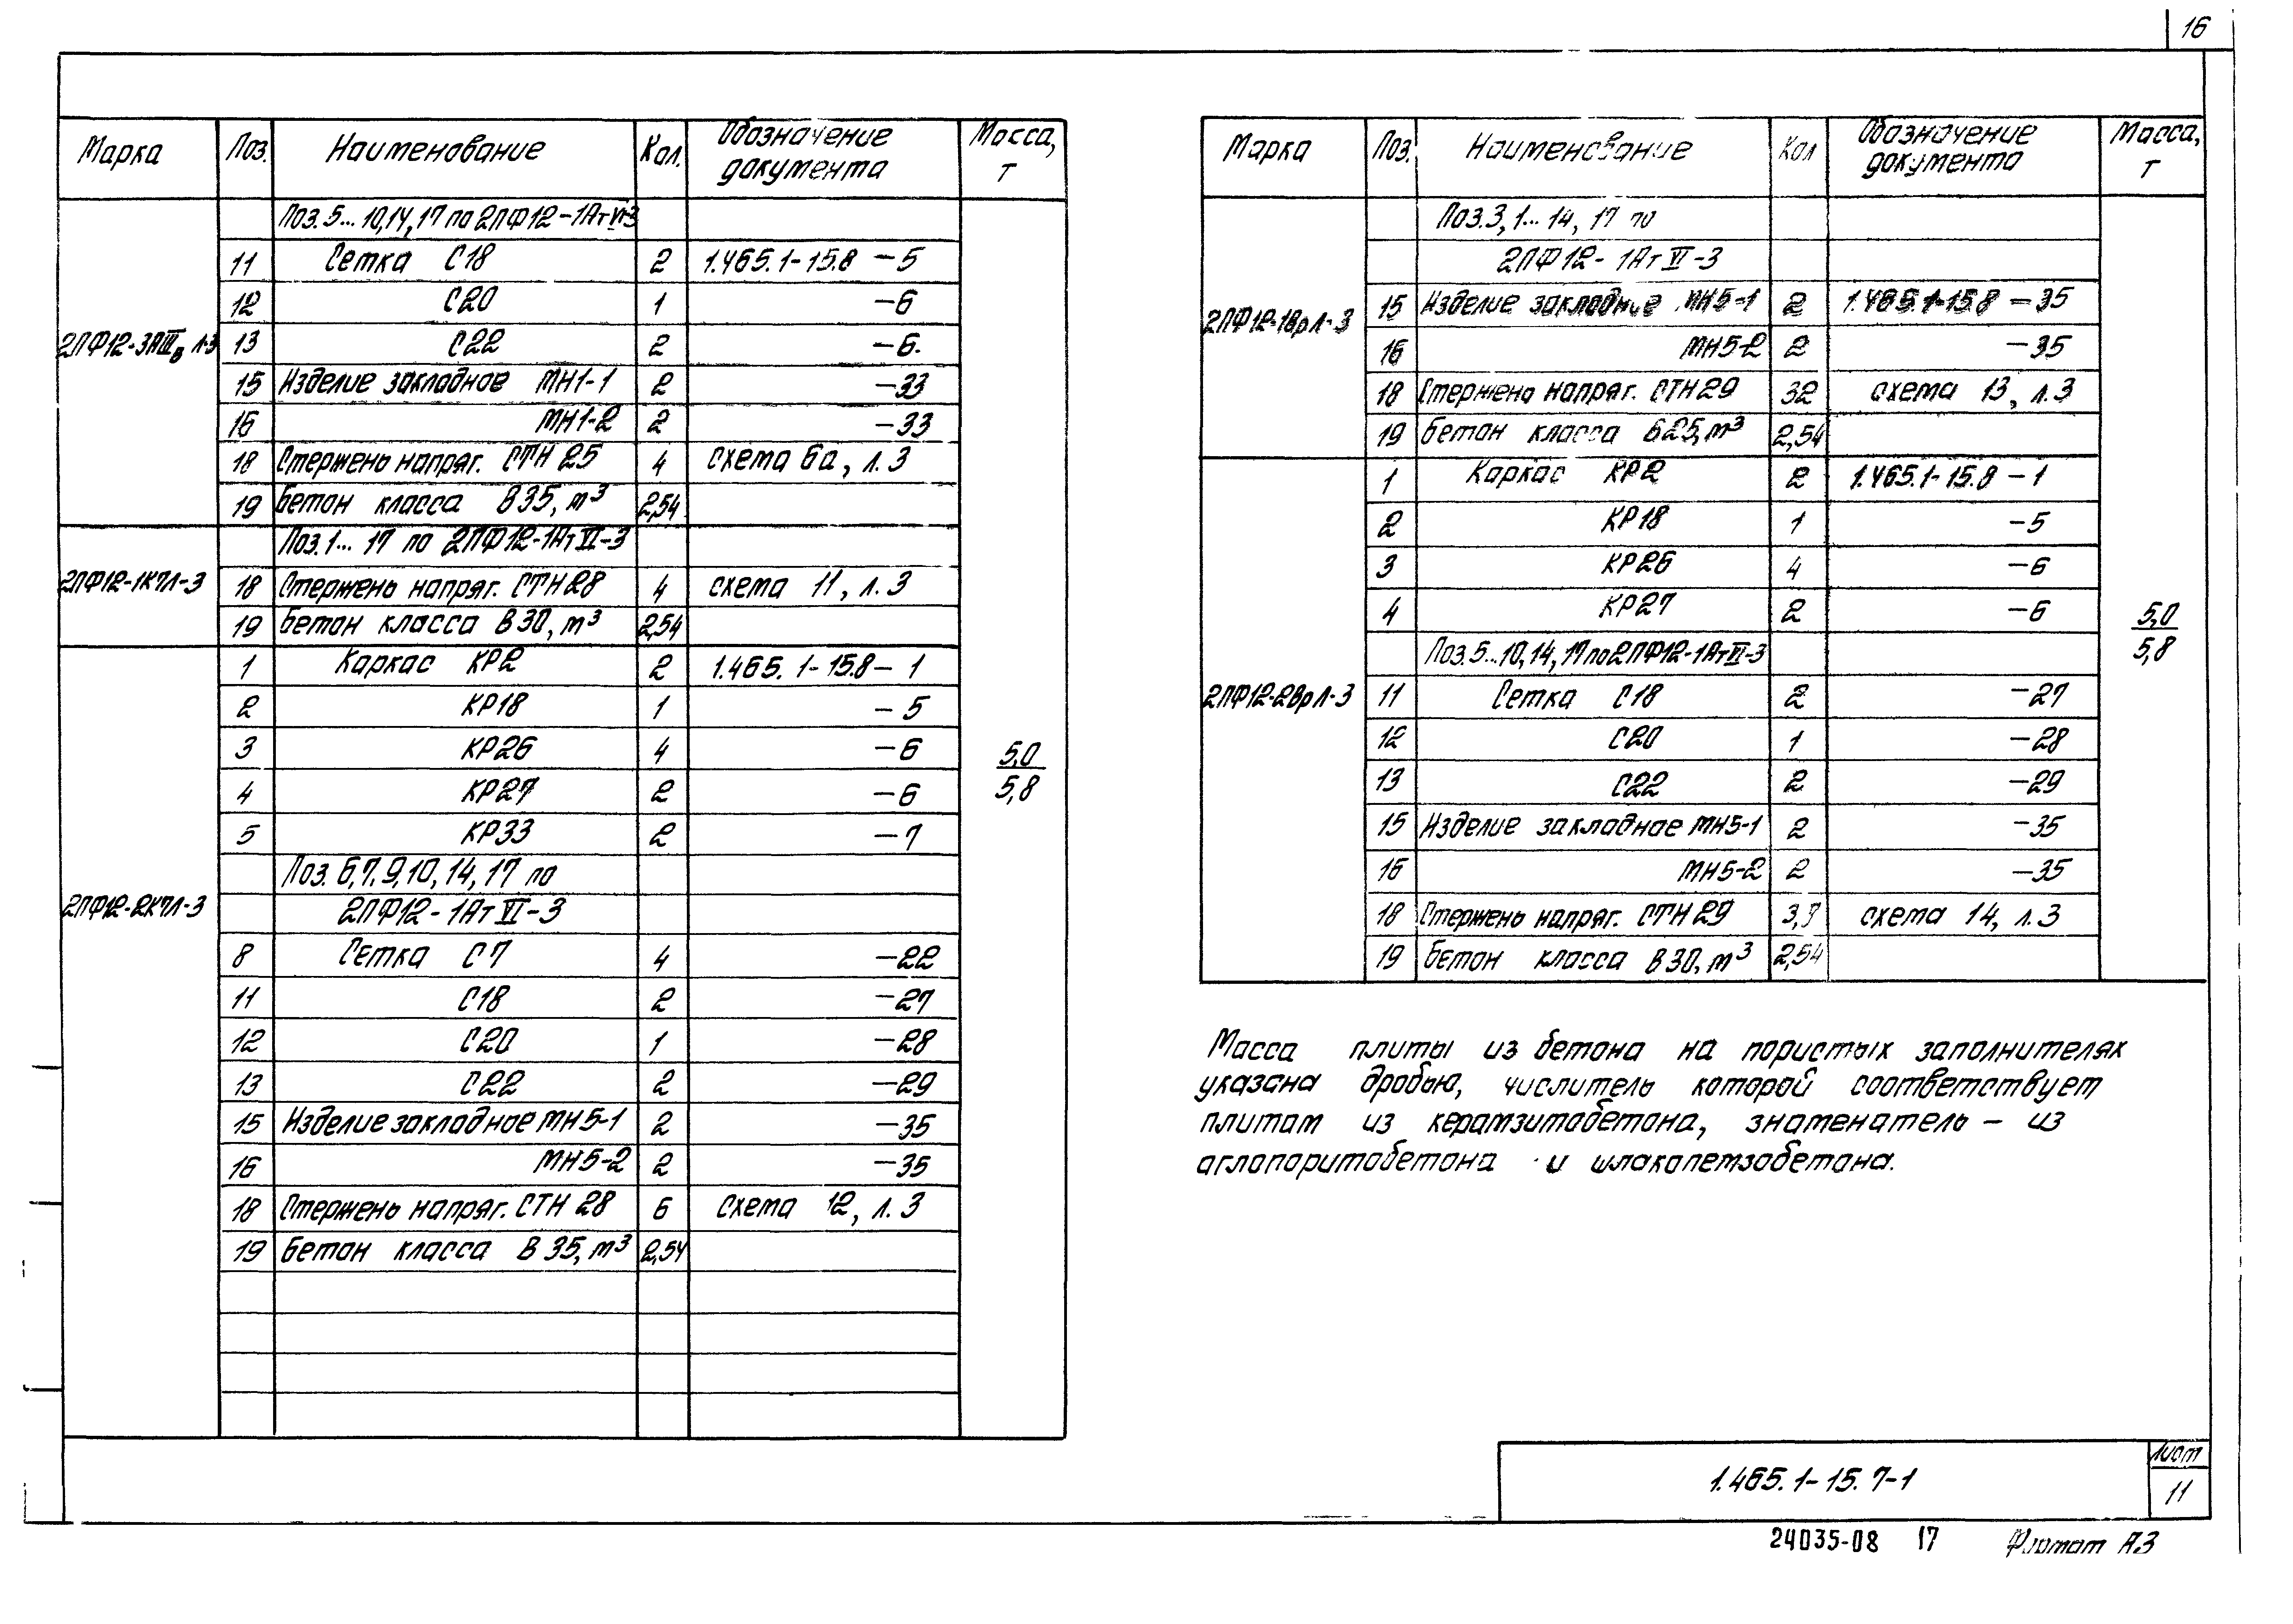 16
Марка Поз. Наименование Кол. Обозначение документа Масса, т
Поз. 5... 10,14,17 по 2ПФ12-1АтVI-3
2ПФ12-3АIIIв Л-3
11 Сетка С18 2 1.465.1-15.8 -5
12 С20 1 -6
13 С22 2 -6.
15 Изделие закладное МН1-1 2 -33
16 МН1-2 2 -33
18 Стержень напряг. СТН 25 4 схема 6а, л.3
19 Бетон класса В35, м³ 2,54
2ПФ12-1К7Л-3
Поз.1... 17 по 2ПФ12-1АтVI-3
18 Стержень напряг. СТН28 4 схема 11, л.3
19 Бетон класса В30, м³ 2,54
2ПФ12-2К7Л-3
1 Каркас КР2 2 1.465.1-15.8- 1
2 КР18 1 - 5
3 КР26 4 - 6
4 КР27 2 - 6
5 КР33 2 - 7
5,0
5,8
Поз. 6,7.9,10, 14, 17 по
2ПФ12-1АтVI-3
8 Сетка С7 4 -22
11 С18 2 -27
12 С20 1 -28
13 С22 2 -29
15 Изделие закладное МН5-1 2 -35
16 МН5-2 2 -35
18 Стержень напряг. СТН 28 6 схема 12, л.3
19 Бетон класса В 35, м³ 2,54
Марка Поз. Наименование Кол Обозначение документа Масса, т
2ПФ12-1ВрЛ-3
Поз.3, 1... 14, 17 по
2ПФ12-1АтVI-3
15 Изделие закладние МН5-1 2 1.465.1-15.8 -35
16 МН5-2 2 -35
18 Стержень напряг. СТН29 32 схема 13, л.3
19 Бетон класса Б25, м³ 2,54
2ПФ12-2ВрЛ-3
1 Каркас КР2 2 1.465.1-15.8 -1
2 КР18 1 -5
3 КР26 4 -6
4 КР27 2 -6
5,0
5,8
Поз.5...10,14,17 по 2ПФ12-1АтVI-3
11 Сетка С18 2 -27
12 С20 1 -28
13 С22 2 -29
15 Изделие закладное МН5-1 2 -35
16 МН5-2 2 -35
18 Стержень напряг. СТН29 схема 14, л.3
19 Бетон класса В30, м³ 2,54
Масса плиты из бетона на пористых заполнителях
указана дробью, числитель которой соответствует
плитам из керамзитобетона, знаменатель - из
аглопоритобетона и шлакопемзобетона.
1.465.1-15.7-1
Лист
11
24035-08 17 Формат А3